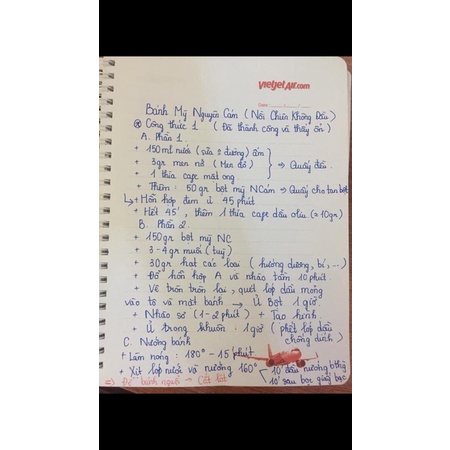 vietjetAir.com
Date:
Bánh Mỳ Nguyên Cám (Nồi Chiên Không Dầu)
⊛ Công thức 1 (Đã thành công và thấy ổn)
A. Phần 1
+ 150ml nước (sữa = đường) ấm
+ 3gr men nở (Men đỏ) ⇒ Quấy đều.
+ 1 thìa cafe mật ong
+ Thêm: 50gr bột mỳ NCám → Quấy cho tan bột
↳ + Hỗn hợp đem ủ 45 phút
+ Hết 45', thêm 1 thìa cafe dầu oliu (= 10gr)
B. Phần 2.
+ 150gr bột mỳ NC
+ 3-4gr muối (tuỳ)
+ 30gr hạt các loại (hướng dương, bí,...)
+ Đổ hỗn hợp A và nhào tầm 10 phút.
+ Vê tròn tròn lại, quét lớp dầu mỏng
vào tô và mặt bánh → Ủ Bột 1 giờ.
+ Nhào sơ (1-2 phút) + Tạo hình
+ Ủ trong khuôn. 1 giờ (phết lớp dầu
chống dính)
C. Nướng bánh
+ Làm nóng: 180° - 15 phút
+ Xịt lớp nước và nướng 160° 10' đầu nướng bthg
10' sau bọc giấy bạc
⇒ Để bánh nguội → Cắt lát